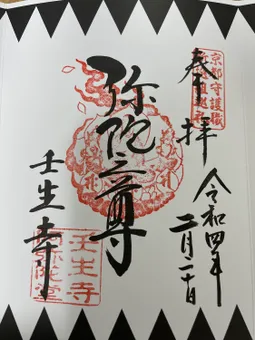 奉拝
令和四年
二月二十日
弥陀之尊
壬生寺
京都守護職
壬生寺